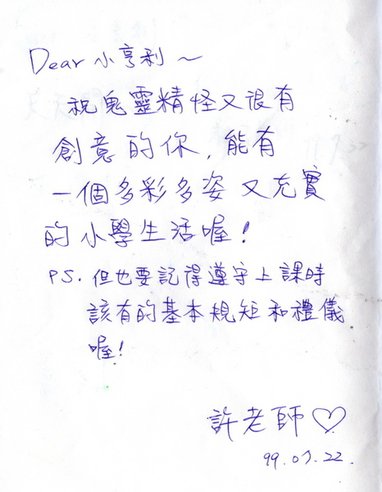 Dear 小亨利～
祝鬼靈精怪又很有
創意的你，能有
一個多彩多姿又充實
的小學生活喔！
PS. 但也要記得遵守上課時
該有的基本規矩和禮儀
喔！
許老師♡
99.07.22.